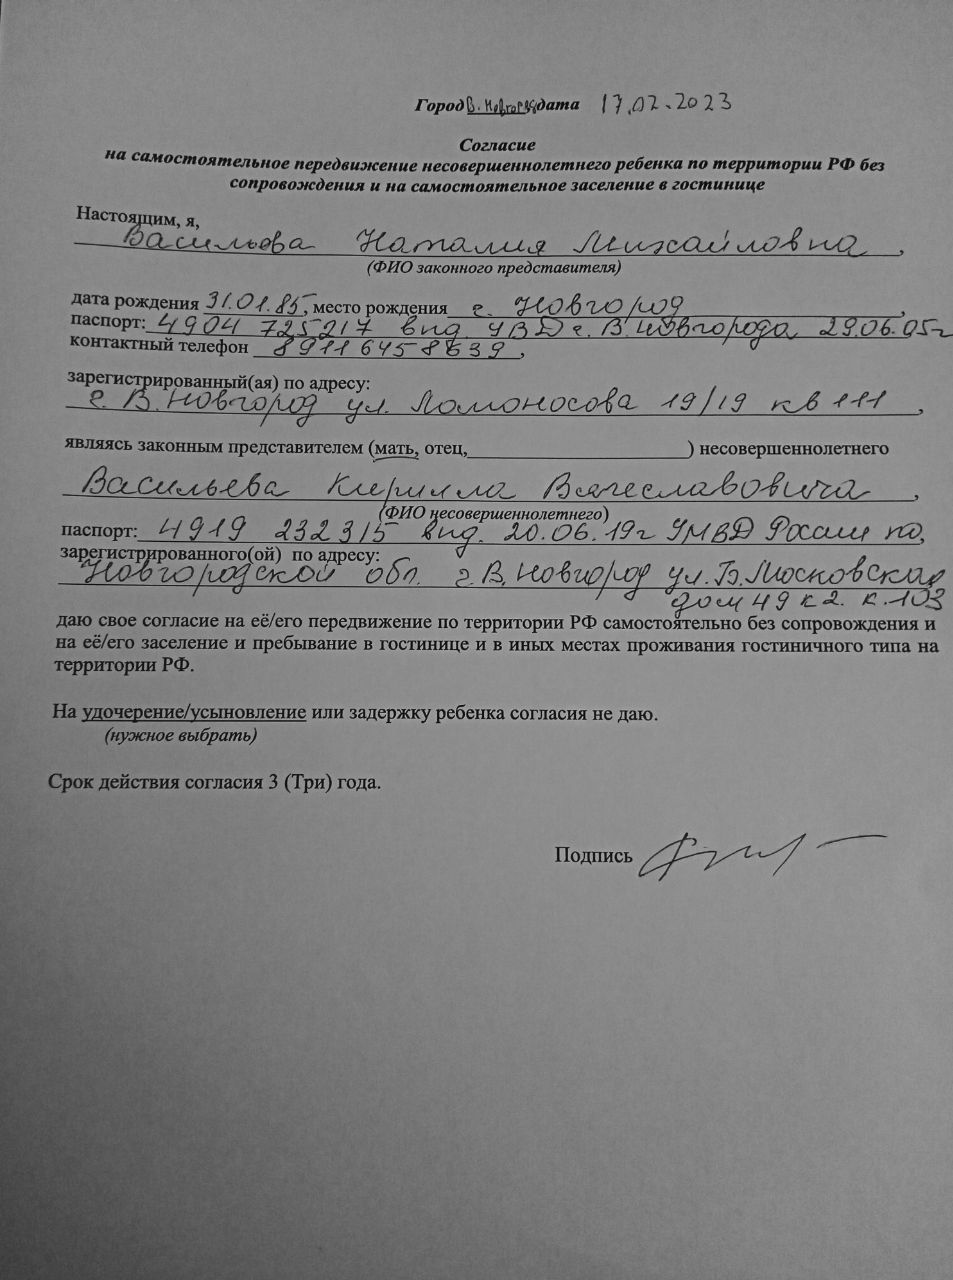 Город В. Новгород дата 17.02.2023
Согласие
на самостоятельное передвижение несовершеннолетнего ребенка по территории РФ без
сопровождения и на самостоятельное заселение в гостинице
Настоящим, я,
Васильева Наталия Михайловна,
(ФИО законного представителя)
дата рождения 31.01.85, место рождения г. Новгород,
паспорт: 4904 725217 выд УВД г. В. Новгорода 29.06.05г
контактный телефон 89116458639,
зарегистрированный(ая) по адресу:
г. В. Новгород ул. Ломоносова 19/19 кв 111,
являясь законным представителем (мать, отец,______________________) несовершеннолетнего
Васильева Кирилла Вячеславовича,
(ФИО несовершеннолетнего)
паспорт: 4919 232315 выд. 20.06.19г УМВД России по,
зарегистрированного(ой) по адресу:
Новгородской обл. г. В. Новгород ул. Б. Московская
дом 49 к 2. к. 103
даю свое согласие на её/его передвижение по территории РФ самостоятельно без сопровождения и
на её/его заселение и пребывание в гостинице и в иных местах проживания гостиничного типа на
территории РФ.
На удочерение/усыновление или задержку ребенка согласия не даю.
(нужное выбрать)
Срок действия согласия 3 (Три) года.
Подпись